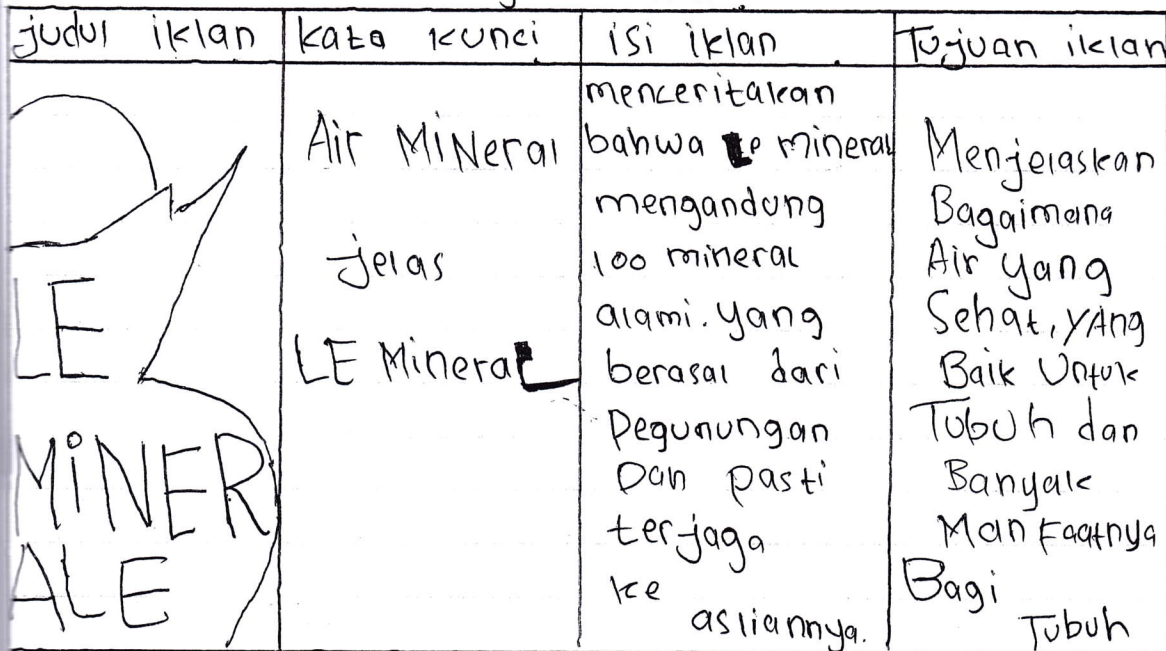 judul iklan
kata kunci
isi iklan
Tujuan iklan
LE
MiNER
ALE
Air MiNeral
jelas
LE Mineral
menceritakan
bahwa Le mineral
mengandung
100 mineral
alami. yang
berasal dari
Pegunungan
Dan pasti
terjaga
ke
asliannya.
Menjelaskan
Bagaimana
Air yang
Sehat, yAng
Baik Untuk
Tubuh dan
Banyak
Manfaatnya
Bagi
Tubuh